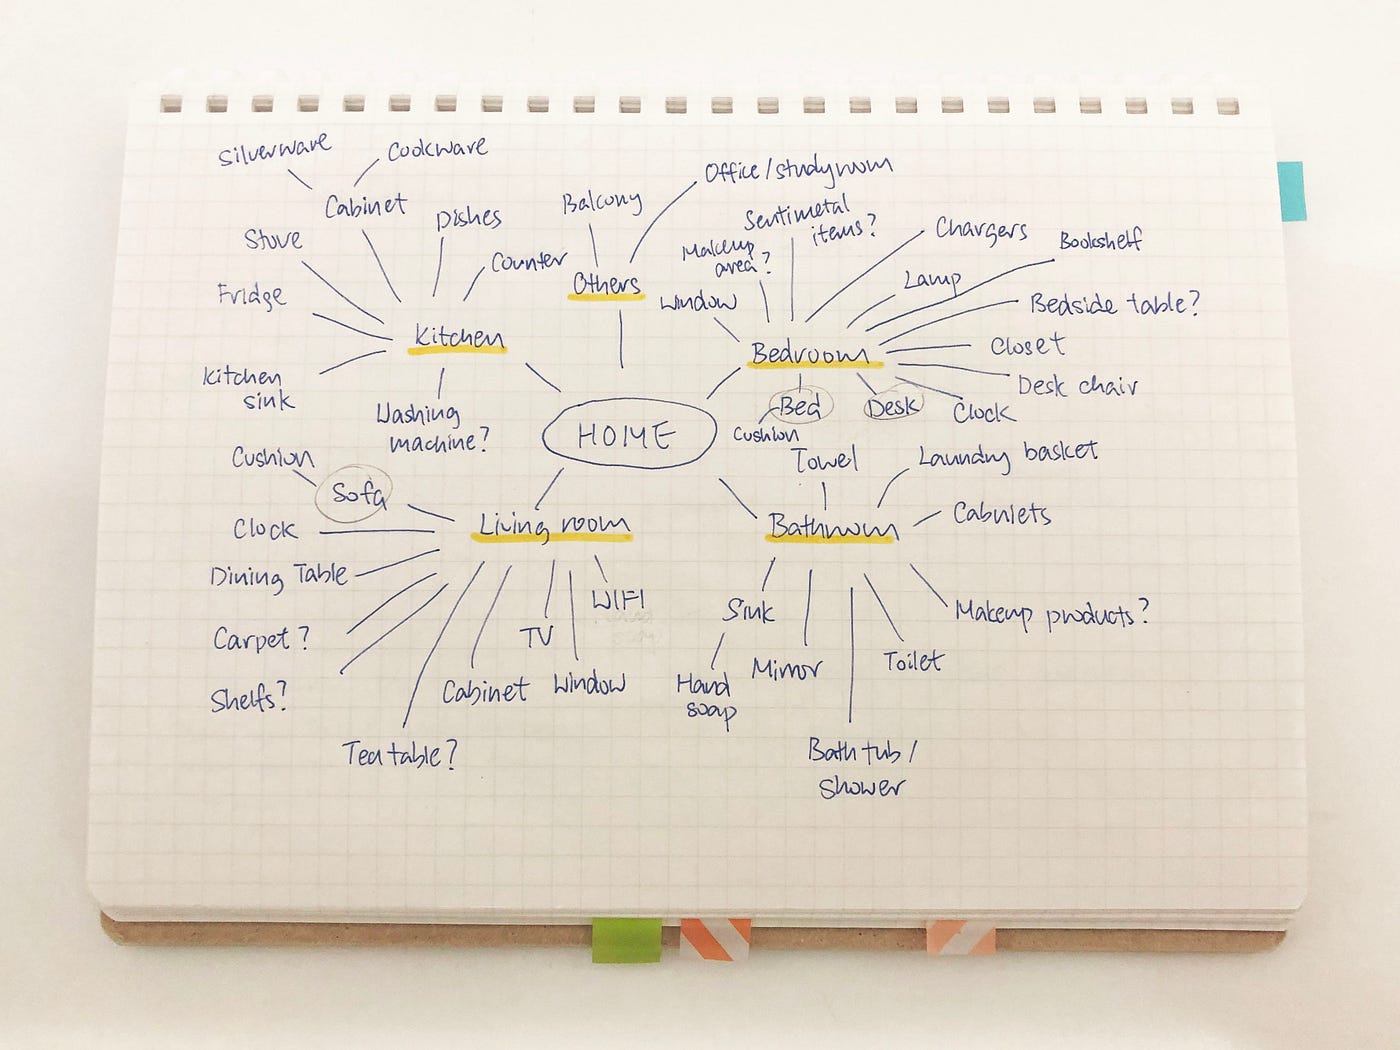 Silverware
Cookware
Cabinet
Dishes
Stove
Counter
Fridge
Kitchen
Kitchen
sink
Washing
machine?
Balcony
Office/studyroom
Others
Sentimetal
items?
Makeup
area?
Window
Chargers
Bookshelf
Lamp
Bedside table?
Bedroom
Closet
Desk chair
Bed
Desk
Clock
Cushion
HOME
Cushion
Sofa
Clock
Living room
Dining Table
WIFI
Carpet?
TV
Shelfs?
Cabinet
Window
Tea table?
Towel
Laundry basket
Bathroom
Cabniets
Sink
Makeup products?
Hand
soap
Mirror
Toilet
Bath tub/
shower